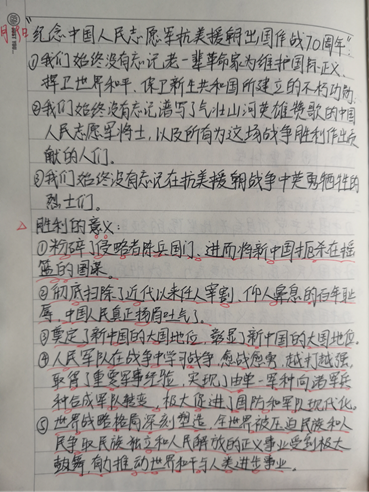 "纪念中国人民志愿军抗美援朝出国作战70周年"
①我们始终没有忘记老一辈革命家为维护国际正义、
捍卫世界和平、保卫新生共和国所建立的不朽功勋.
②我们始终没有忘记谱写了气壮山河英雄赞歌的中国
人民志愿军将士,以及所有为这场战争胜利作出贡
献的人们.
③我们始终没有忘记在抗美援朝战争中英勇牺牲的
烈士们.
△ 胜利的意义:
①粉碎了侵略者陈兵国门、进而将新中国扼杀在摇
篮的图谋.
②彻底扫除了近代以来任人宰割、仰人鼻息的百年耻
辱,中国人民真正扬眉吐气了.
③奠定了新中国的大国地位,彰显了新中国的大国地位.
④人民军队在战争中学习战争,愈战愈勇,越打越强,
取得了重要军事经验,实现了由单一军种向诸军兵
种合成军队转变,极大促进了国防和军队现代化.
⑤世界战略格局深刻塑造,全世界被压迫民族和人
民争取民族独立和人民解放的正义事业受到极大
鼓舞,有力推动世界和平与人类进步事业.